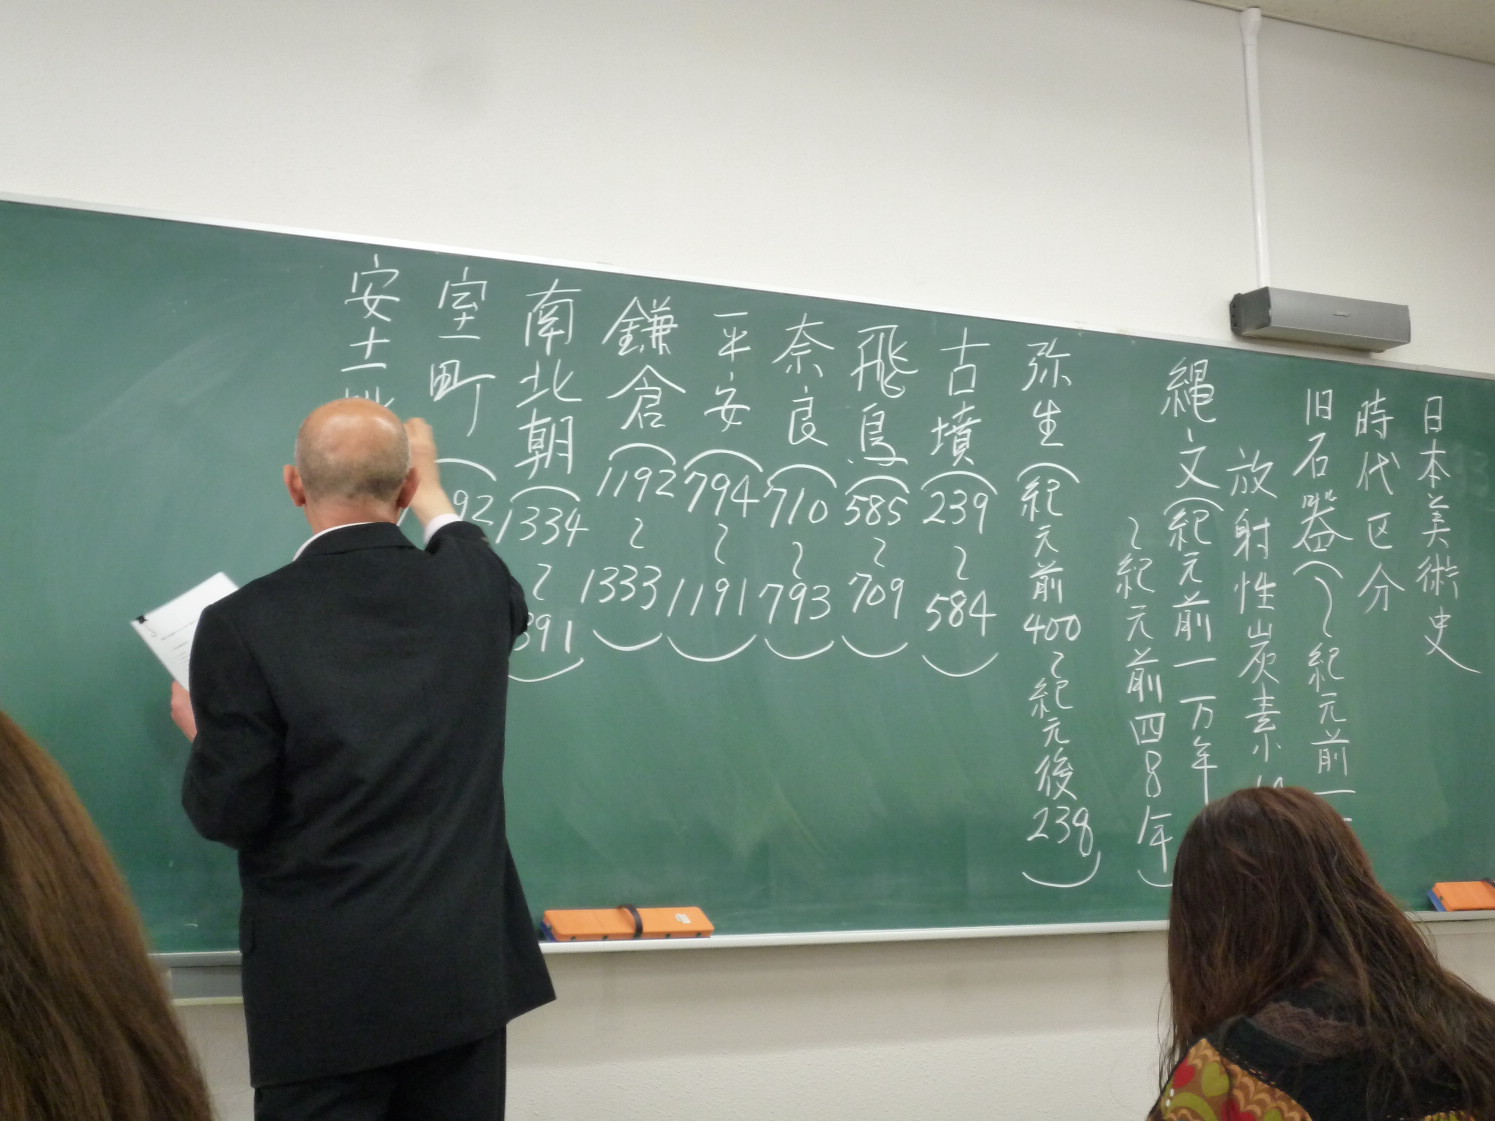 日本美術史
時代区分
旧石器(～紀元前一
放射性炭素
縄文(紀元前一万年
～紀元前四8年)
弥生(紀元前400～紀元後239)
古墳(239～584)
飛鳥(585～709)
奈良(710～793)
平安(794～1191)
鎌倉(1192～1333)
南北朝(1334～391)
室町(92
安土